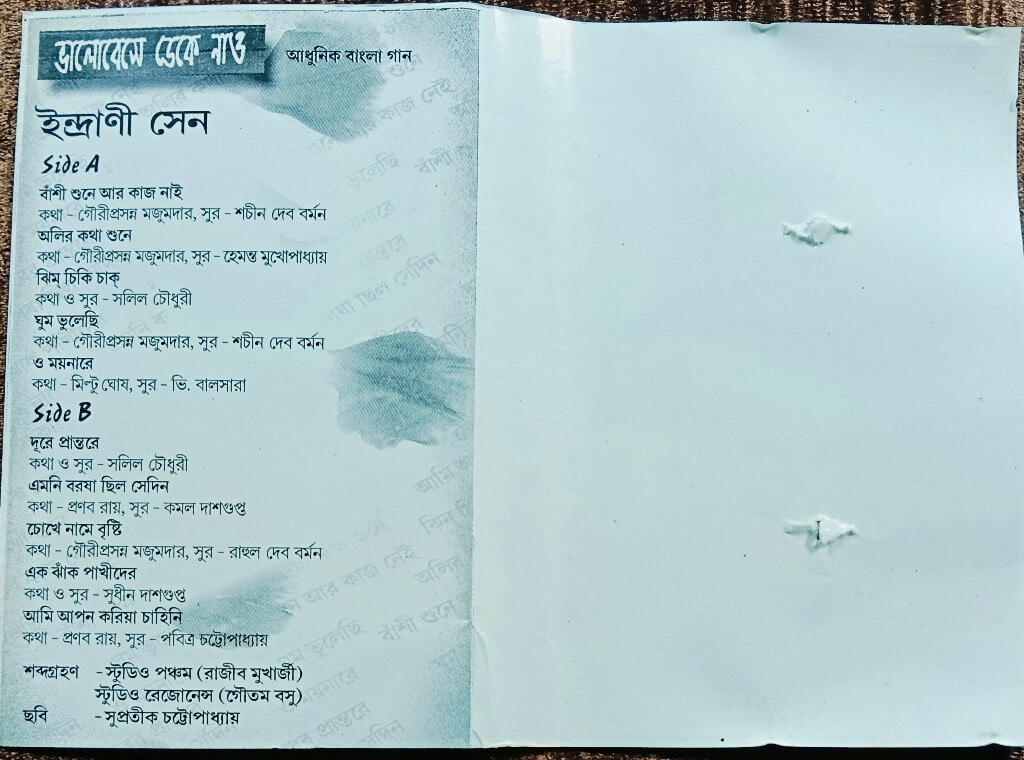 ভালোবেসে ডেকে নাও
আধুনিক বাংলা গান
ইন্দ্রাণী সেন
Side A
বাঁশী শুনে আর কাজ নাই
কথা - গৌরীপ্রসন্ন মজুমদার, সুর - শচীন দেব বর্মন
অলির কথা শুনে
কথা - গৌরীপ্রসন্ন মজুমদার, সুর - হেমন্ত মুখোপাধ্যায়
ঝিম্ চিকি চাক্
কথা ও সুর - সলিল চৌধুরী
ঘুম ভুলেছি
কথা - গৌরীপ্রসন্ন মজুমদার, সুর - শচীন দেব বর্মন
ও ময়নারে
কথা - মিল্টু ঘোষ, সুর - ভি. বালসারা
Side B
দূরে প্রান্তরে
কথা ও সুর - সলিল চৌধুরী
এমনি বরষা ছিল সেদিন
কথা - প্রণব রায়, সুর - কমল দাশগুপ্ত
চোখে নামে বৃষ্টি
কথা - গৌরীপ্রসন্ন মজুমদার, সুর - রাহুল দেব বর্মন
এক ঝাঁক পাখীদের
কথা ও সুর - সুধীন দাশগুপ্ত
আমি আপন করিয়া চাহিনি
কথা - প্রণব রায়, সুর - পবিত্র চট্টোপাধ্যায়
শব্দগ্রহণ - স্টুডিও পঞ্চম (রাজীব মুখার্জী)
স্টুডিও রেজোনেন্স (গৌতম বসু)
ছবি - সুপ্রতীক চট্টোপাধ্যায়